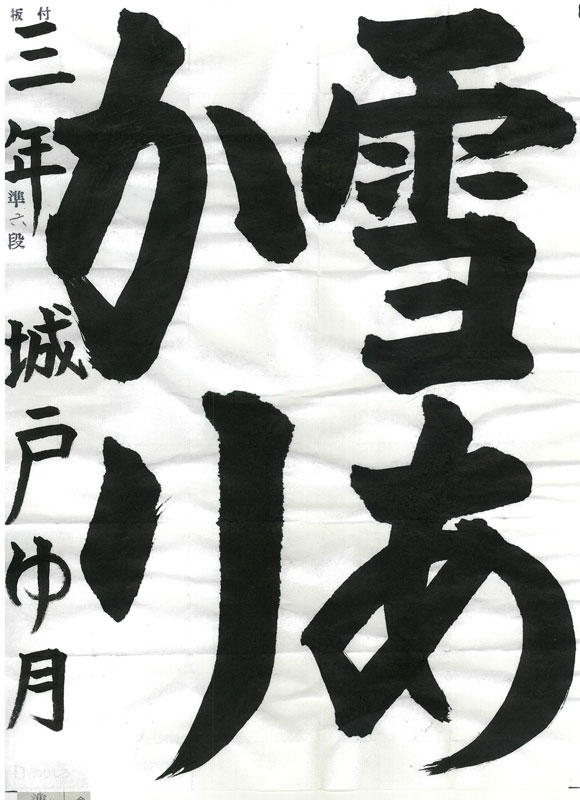 雪あ
かり
板付
三年
準六段
城戸ゆ月